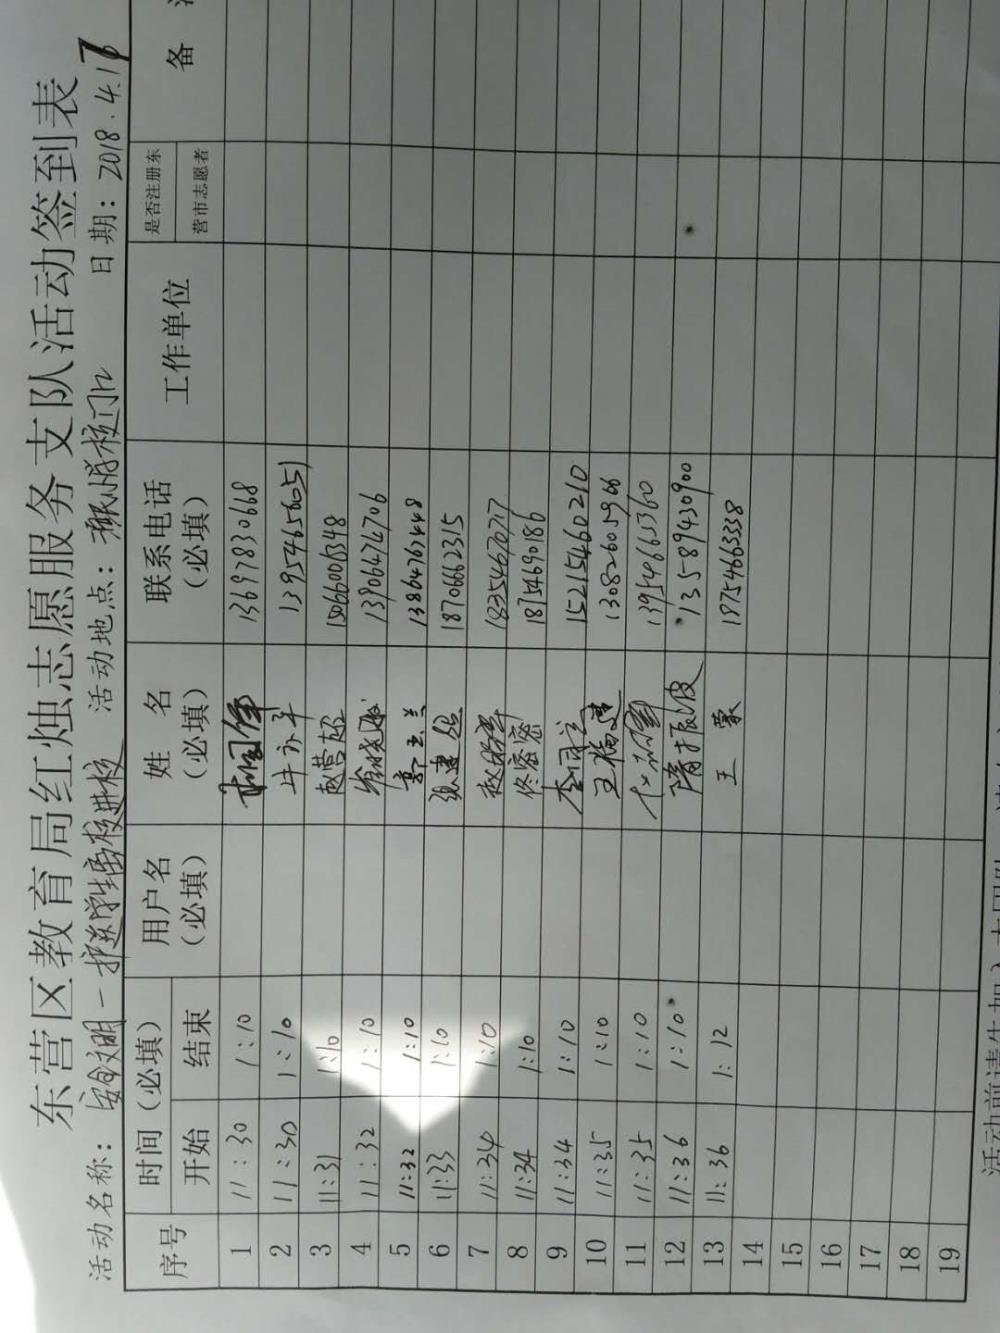 东营区教育局红烛志愿服务支队活动签到表
活动名称：安全文明一护送学生离校进校 活动地点： 校门口 日期：2018.4.1
序号 时间（必填） 用户名（必填） 姓 名（必填） 联系电话（必填） 工作单位 是否注册东营市志愿者 备
开始 结束
1 11:30 1:10 13697830668
2 11:30 1:10 13954656051
3 11:31 1:10 赵营超
4 11:32 1:10 13906474706
5 11:32 1:10 13864763448
6 11:33 1:10 张建 18706662315
7 11:34 1:10
8 11:34 1:10 佟密密 18754690186
9 11:34 1:10 15215460210
10 11:35 1:10 13082605966
11 11:35 1:10 13954663360
12 11:36 1:10 隋振波 13589430900
13 11:36 1:12 王蒙 18754663338
14
15
16
17
18
19